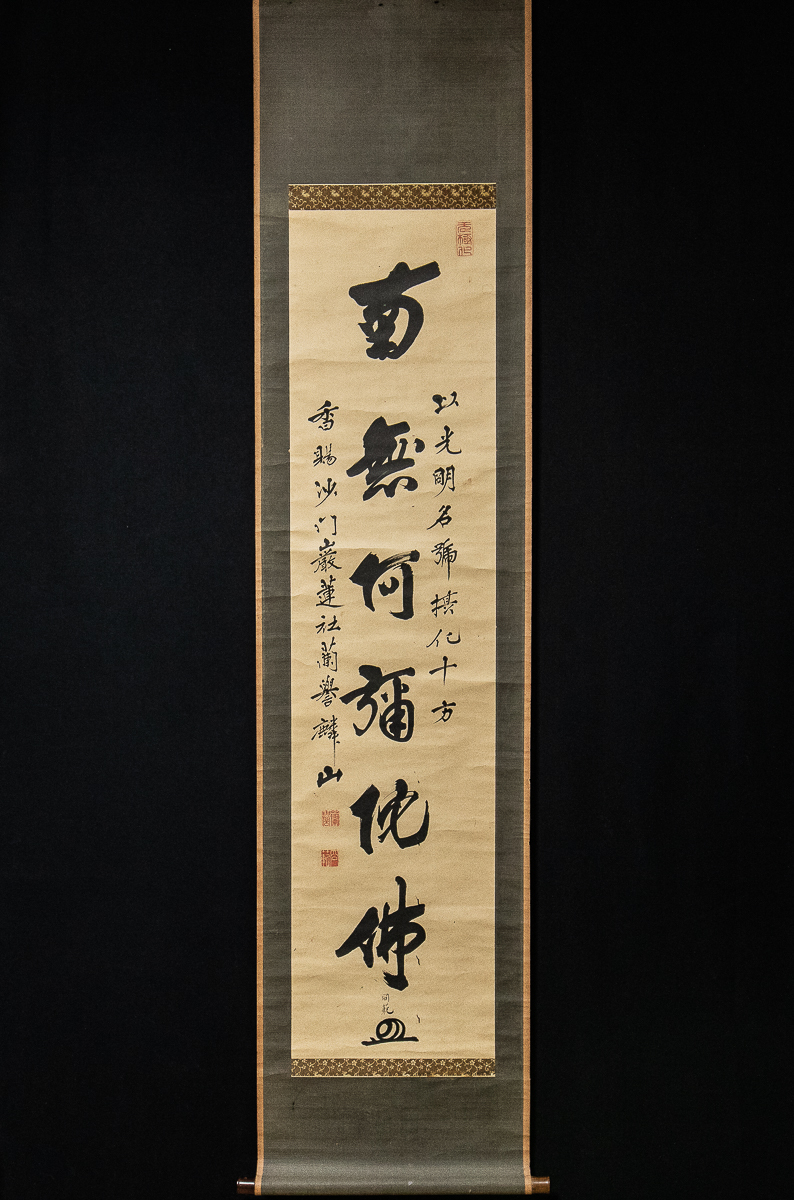 以光明名號攝化十方
南無阿彌陀佛
香賜沙门巖蓮社蘭譽麟山